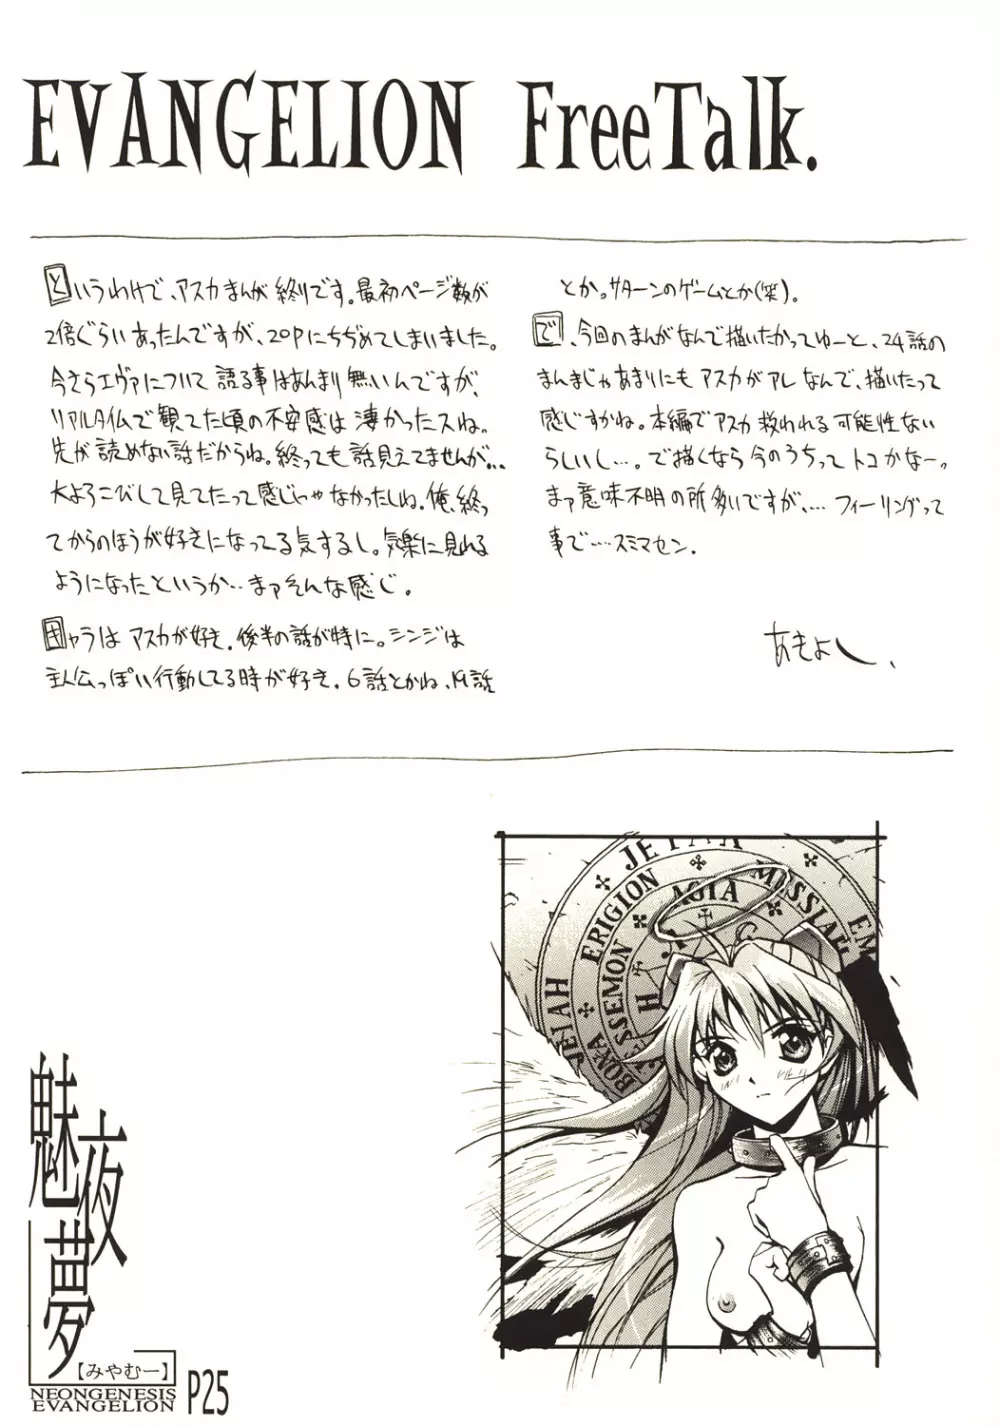 EVANGELION FreeTalk.
というわけで、アスカまんが終りです。最初ページ数が
2倍ぐらいあったんですが、20Pにちぢめてしまいました。
今さらエヴァについて語る事はあんまり無いんですが、
リアルタイムで観てた頃の不安感は凄かったスね。
先が読めない話だからね。終っても話見えてませんが…
大よろこびして見てたって感じじゃなかったしね。俺、終っ
てからのほうが好きになってる気するし。気楽に見れる
ようになったというか‥まァそんな感じ。
キャラはアスカが好き。後半の話が特に。シンジは
主人公っぽい行動してる時が好き。6話とかね、19話
とか。サターンのゲームとか(笑)。
で、今回のまんがなんで描いたかってゆーと、24話の
まんまじゃあまりにもアスカがアレなんで、描いたって
感じすかね。本編でアスカ救われる可能性ない
らしいし…。で描くなら今のうちってトコかなー。
まァ意味不明の所多いですが、… フィーリングって
事で‥‥スミマセン.
あきよし、
JEIAH
ERIGION
AGIA
MESSIAH
EM
JEIAH
BOXA
SSEMON
H
G
魅夜夢
【みやむー】
NEONGENESIS
EVANGELION
P25